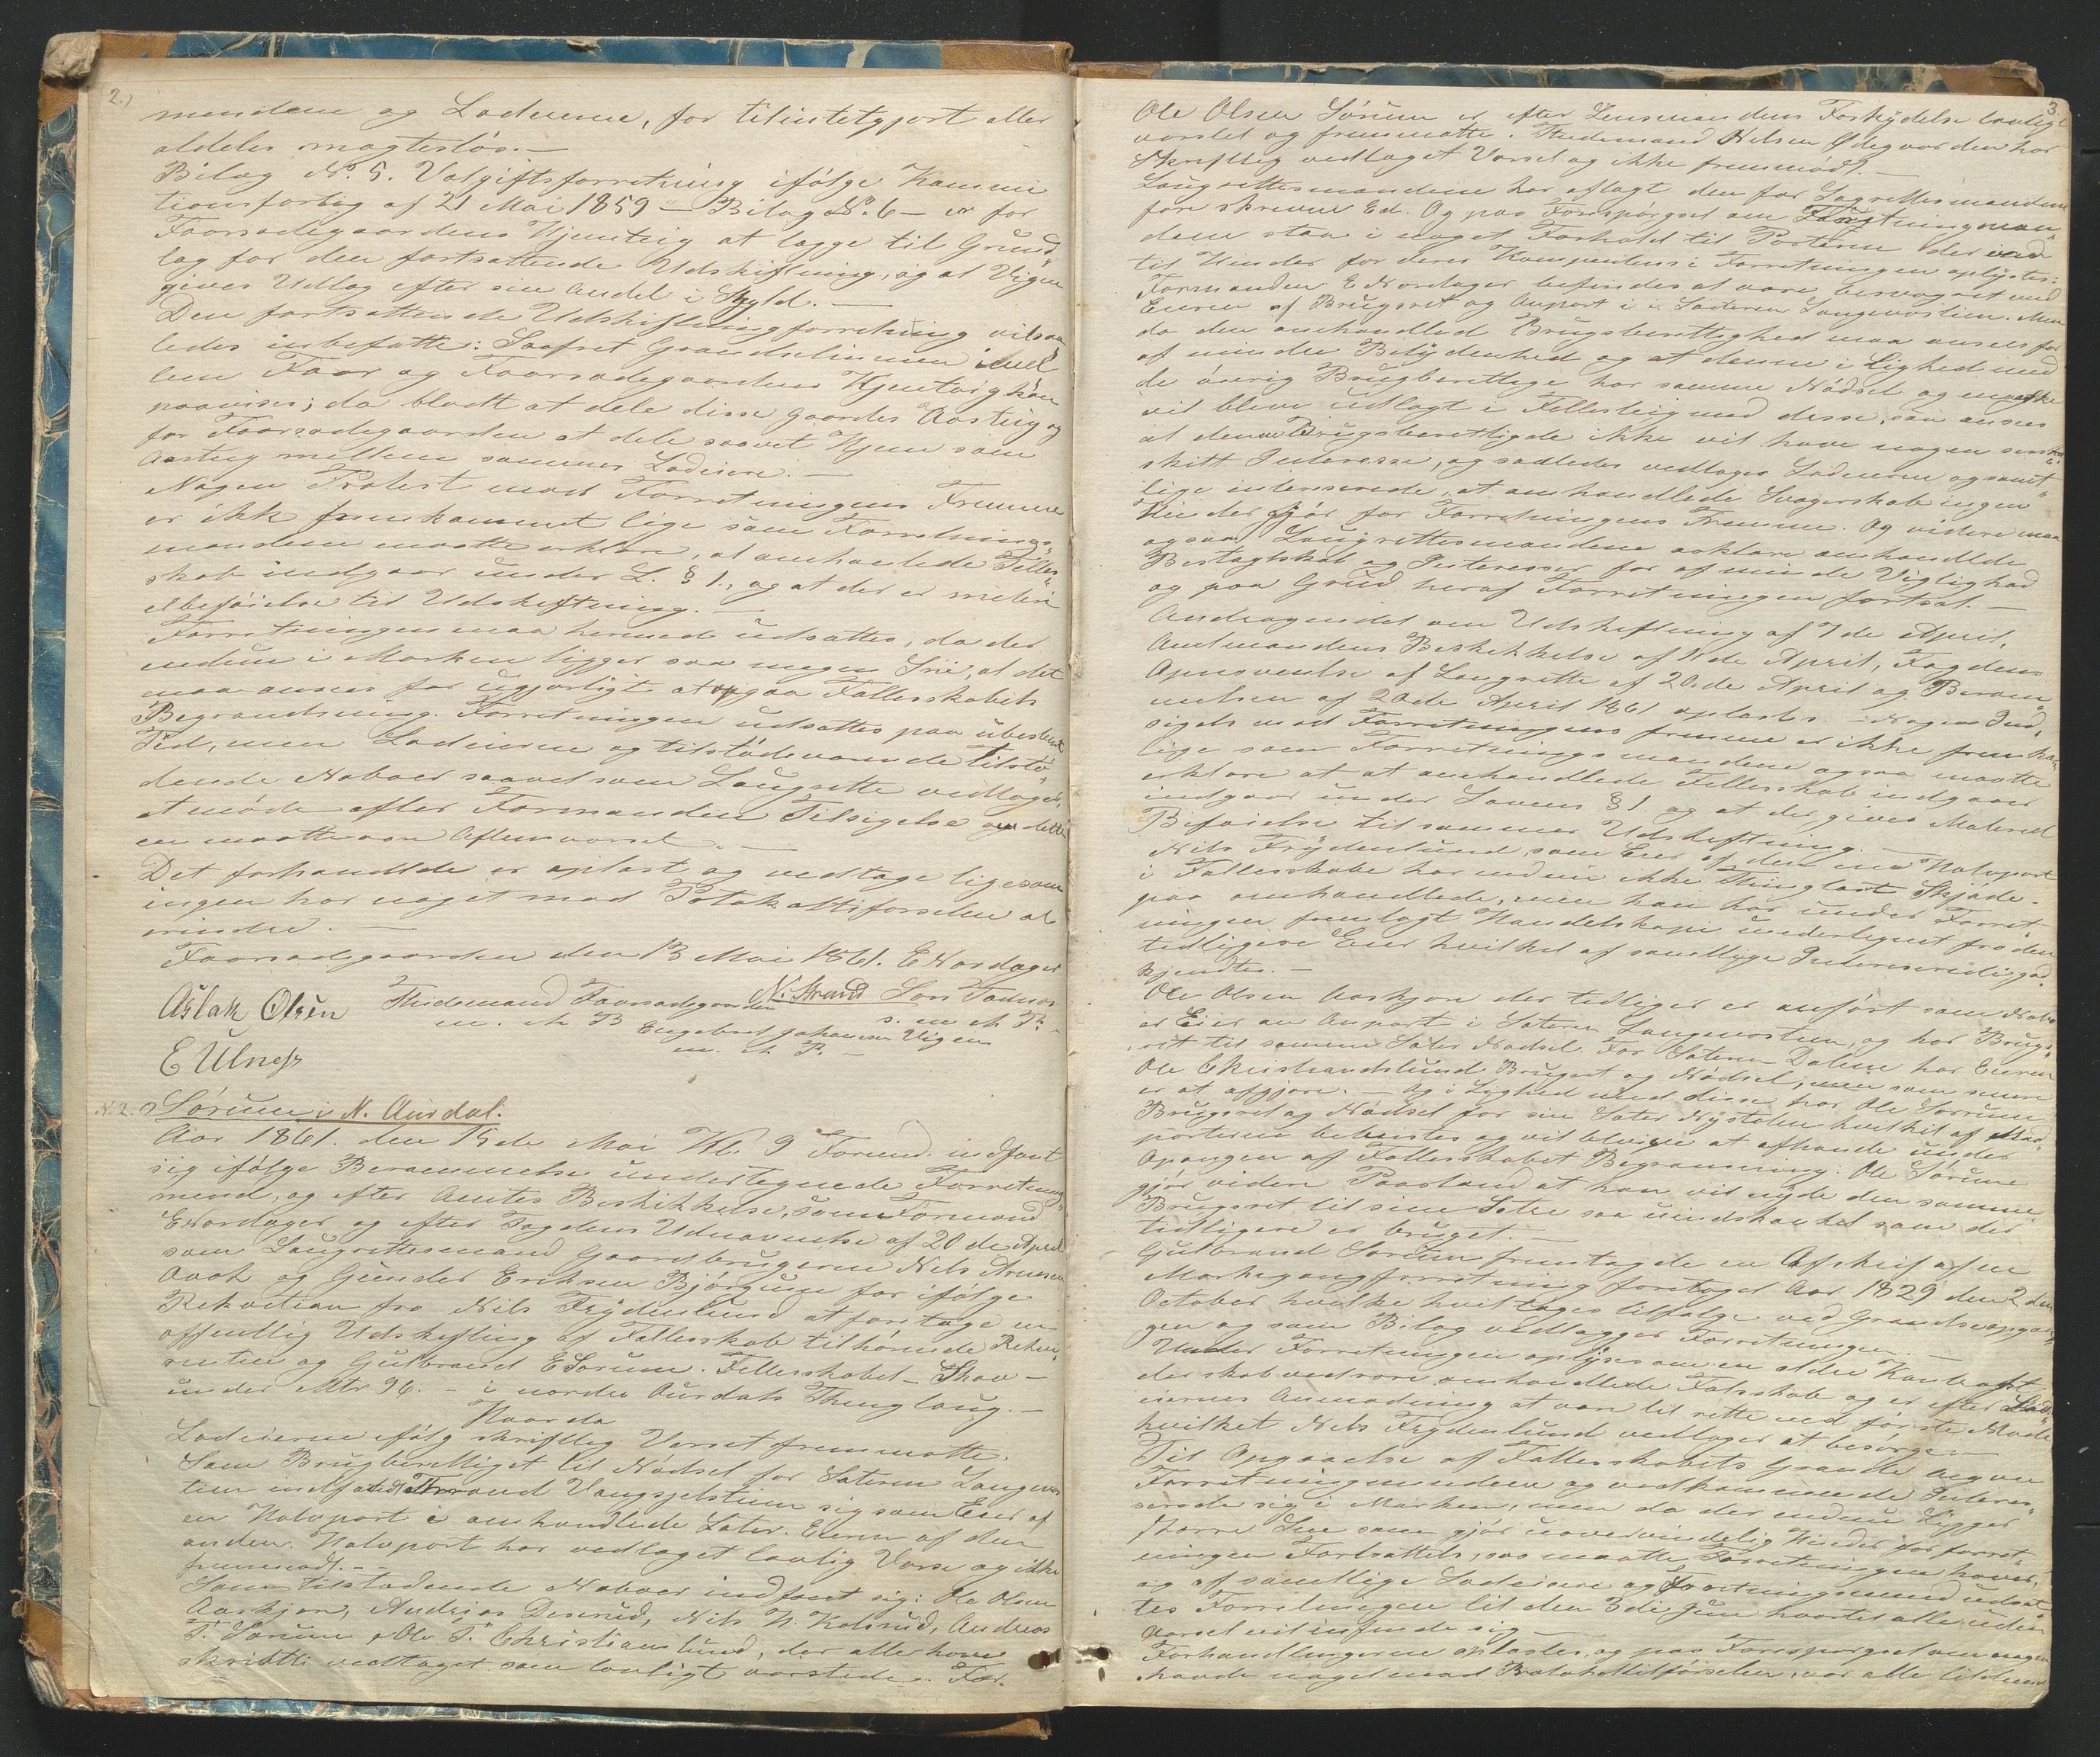 2.)
mendene og Lodeierne, for tilintetgjort eller
aldeles magtesløs.—
Bilag No. 5. Valgiftsforretning ifølge Kommi
tionsfortog af 21 Mai 1859 — Bilag No. 6 — er for
Faarsadegaardens Hjemteig at lægge til Grund„
lag for den fortsattende Udskiftning, og at Vigen
gives Udlæg efter sin Andel i Skyld.—
Den fortsattende Udskiftningforretning vil saa
ledes inbefatte: Saafret Grændselinnen imel
lem Faar og Faarsadegaardens Hjemteig kan
paavises; da blodt at dele disse Gaardes Aasteig og
for Faarsadegaarden at dele saavel Hjem som
Aasteig mellem sammes Lodeiere.—
Nogen Protest mod Forretningens Fremme
er ikk fremkommet lige som Forretnings„
mændene maatte erklære, at omhanlede Fælles„
skab indgaar under L. § 1., og at der er meteri
el beføielse til Udskiftning.—
Forretningen maa hermed udsættes, da der
endnu i Marken ligger saa megen Snee, at det
maa ansees for ugjørligt at opgaa Fællesskabets
Begrændsning. Forretningen udsattes paa ubestemt
Tid, men Lodeierne og tilstødeværende tilstø„
dende Naboer saavel som Laugrette vedtoges,
at møde efter Formanden Tilsigelse om dette
en maatte være Aftensvarsel.—
Det forhandlede er oplæst og vedtage lige som
ingen har noget mod Protokoltilførselen at
erindre.—
Faarsadegaarden den 13 Mai 1861. E Nordager
Aslak Olsen Thidemand Faarsadegaarden N. Strand Lars
m. h. P. Engebret Johannesen Vigen s. m h P.
m. h P.—
E Ulnes
N. 2. Sørum i N. Aurdal.
Aar 1861. den 15de Mai Kl. 9 Formd. indfant
sig ifølge Berammelse undertegnede Forretnings„
mend, og efter Amtes Beskikkelse, som Formand
E Nordager og efter Fogdens Udnævnelse af 20de April
som Laugrettesmænd Gaardbrugerne Nels Arnesen
Avok og Gunder Eriksen Bjørgum for ifølge
Rekvetion fra Nils Frydenlund at foretage en
offentlig Udskiftling af Fællesskab tilhørende Rekvi„
renten og Gulbrand E Sørum. Fellesskabet — Skov —
under Mtr 96.— i nordre Aurdals Thinglaug.—
Hvor da
Lodeierne ifølg skriftlig Varsel fremmøtte.
Som Brugberettiget til Nødsel for Sæteren Langevas
tien indfandt Tron Vangsjelstuen sig som Eier af
en Halvport i omhandlede Sæter. Eieren af den
anden Halvport har vedtaget lovlig Varse og ikke
fremmødt.—
Som tilstødende Naboer indfant sig: Ole Olsen
Aaskjær, Andreas Deserud, Nils N. Kolsrud, Andreas
T. Sørum & Ole T. Christianslund, der alle have
skriftli vedtaget som lovligt varslede. For.
3.
Ole Olsen Sørum er efter Lensmandens Forkydelse lovligt
varslet og fremmøtte. Thidemand Nelsen Ødegaarden har
Skriftlig vedtaget Varsel og ikke fremmødt.—
Laugrettesmændene har aflagt den for Lagrettesmændene
fore skrevne Ed. Og paa Forespørgsel om Forretningmæn„
dene staa i noget Forhold til Parterne der ved
til Hinder for deres Kompentens i Forretningen oplystes:
Formanden E Nordager befindes at være besvogret med
Eieren af Brugsret og Anport i i Sæteren Langevastien. Men
da den omhandlede Brugsberettighed maa ansees for
af mindre Betydenhed og at denne i Lighed med
de øvrig Brugberettige har samme Nødsel og maaske
vil bleve udlagt i Fellesteig med desse, saa ansees
at denne Brugsberettigede ikke vil have nogen sær„
skilt Interesse, og saaledes vedtoges Lodeierne og samt„
lige interserede, at omhandlede Svogerskab ingen
Hinder gjør for Forretningens Fremme. Og videre maa
ogsaa Laugrettesmændene erklære omhandlede
Bestagtskab og Interesser for af minde Vigtighed
og paa Grund heraf Forretningen fortsat.—
Andragendet om Udskiftning af 7de April,
Amtmandens Beskikkelse af 11de April, Fogdens
Opnevnelse af Laugrette af 20de April og Beram
melsen af 20de April 1861 oplæstes.— Nogen Ind„
sigels mod Forretningens fremme er ikke fremkom
lige som Forretnings mændene ogsaa maatte
erklære at at omhandlede Fellesskab indgaaer
indgaar under Lovens § 1 og at der gives Materiel
Beføielse til sammes Udskiftning.—
Nils Frydenlund som Eier af den ene Halvport
i Fællesskabe har endnu ikke Thinglæst Skjøde.
paa omhandlede, men han har under Forret
ningen fremlagt Handelskopi underlegnet fra den
tidligere Eier hvilket af samtlige Interserede god
kjendtes.—
Ole Olsen Aaskjær der tidliger er anført som Nabo
er Eier en Anport i Sæteren Langevastien, og har Brugs„
ret til samme Sæter Nødsel. For Sæteren Dalene har Eieren
Ole Christianslund Brugsret og Nødsel, men som senere
er at afgjøre.— Og i Lighed med disse har Ole Sørum
Brugsret og Nødsel for sin Sæter Nystølen hvilket af Mod
parterne bekeistes og vil bleve at afhandle under
Opangen af Fællesskabet Begrænsning. Ole Sørum
gjør videre Paastand at han vil nyde den samme
Brugsret til sine Sætre saa uindskrænket som der
tidligere er bruget.—
Gulbrand Sørum fremlagde en Afskrif af en
Markegangforretning foretaget Aar 1829 den 2den
October hvilke hvil tages tilfølge ved Grændseopgan„
gen og som Bilag vedlegges Forretningen.—
Under Forretningen oplyses om en eldre Kontrakt
derskab vedrøre omhandlede Felsskab og er efter Lod„
eiernes Anmodning at vare til rette ved første Møde
hvilket Nils Frydenlund vedtager at besørge.—
Til Opgaaelse af Fellesskabets Grændse begav
Forretningmendene og vedkommende Interes„
serede sig i Marken, men da der endnu Ligger
større Snee som gjør uovervindelig Hinder for forret„
ningen Fortsettels, saa maatte Forretningen hæves,
og af samtlige Lodeiere og Forretningsmend udsat
tes Forretningen til den 3die Juni hvortil alle uden
varsel vil infinde sig.—
Forhandlingerne oplæstes, og paa Forespørgsel om nogen
havde noget mod Protokoltilførselen, var alle tilstede